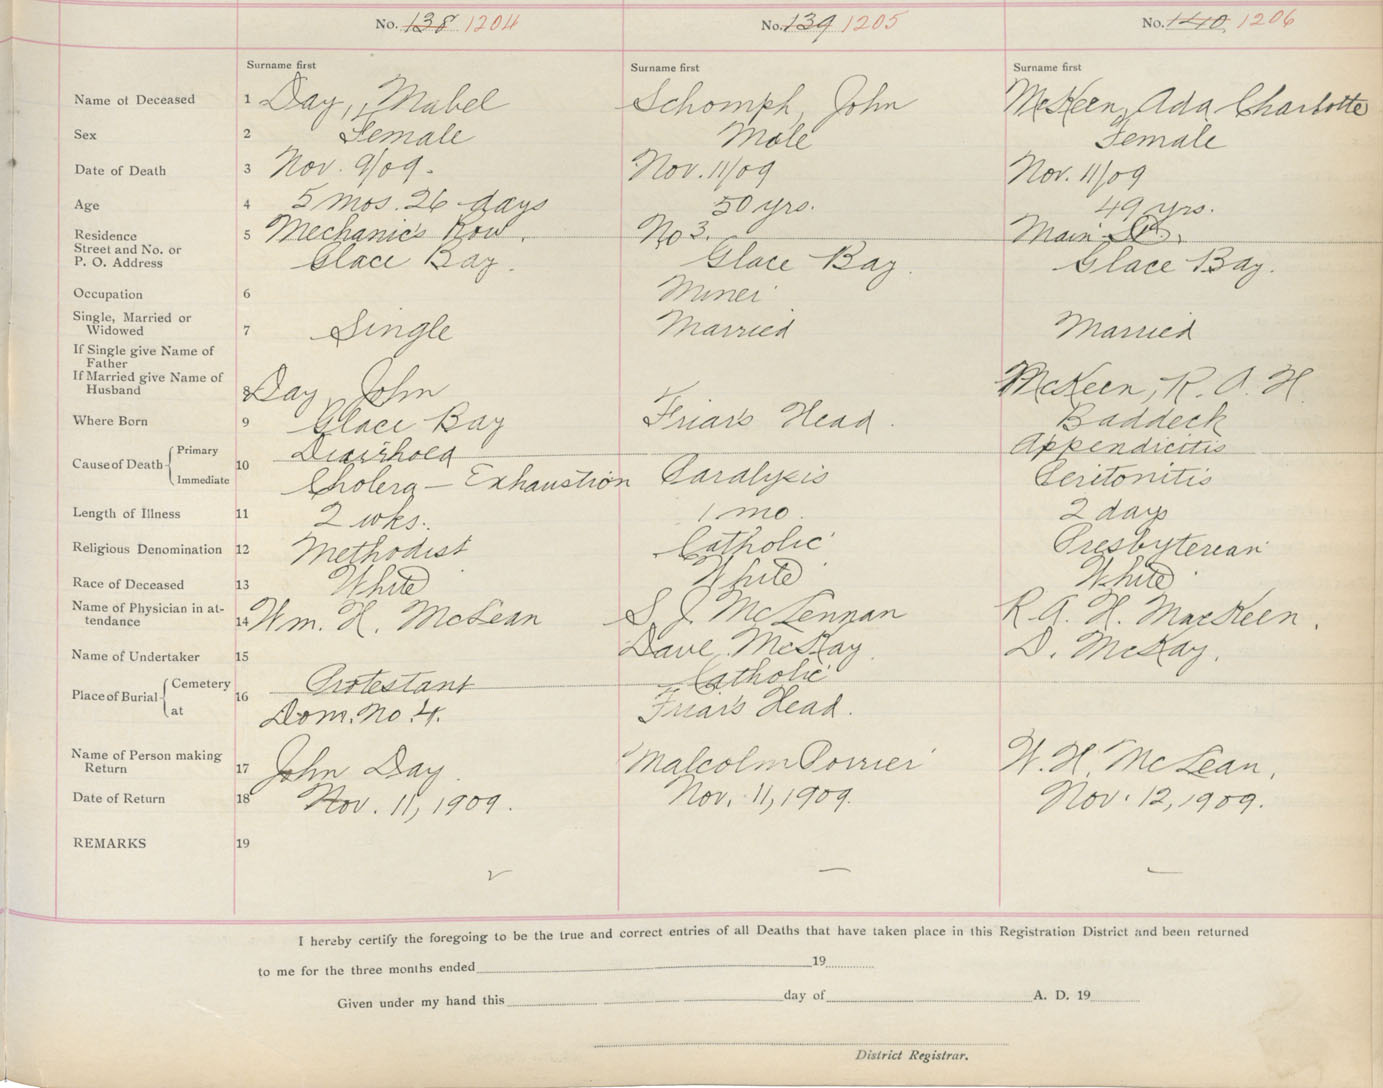 No. 138 1204 No. 139 1205 No. 140 1206
Surname first Surname first Surname first
Name of Deceased 1 Day, Mabel Schomph, John McKeen, Ada Charlotte
Sex 2 Female Male Female
Date of Death 3 Nov. 9/09. Nov. 11/09 Nov. 11/09
Age 4 5 mos. 26 days 50 yrs. 49 yrs.
Residence 5 Mechanics Row. No 3. Main St.
Street and No. or
P. O. Address Glace Bay. Glace Bay. Glace Bay.
Occupation 6 Miner
Single, Married or
Widowed 7 Single Married Married
If Single give Name of
Father
If Married give Name of
Husband 8 Day John McKeen, R. A. H.
Where Born 9 Glace Bay Friar's Head. Baddeck
Cause of Death Primary 10 Diarrhoea Appendicitis
Immediate Cholera - Exhaustion Paralysis Peritonitis
Length of Illness 11 2 wks. 1 mo. 2 days
Religious Denomination 12 Methodist Catholic Presbyterian
Race of Deceased 13 White White White
Name of Physician in at-
tendance 14 Wm. H. McLean S. J. McLennan R. A. H. MacKeen.
Name of Undertaker 15 Dave McKay. D. McKay.
Place of Burial Cemetery 16 Protestant Catholic
at Dom. No. 4. Friar's Head.
Name of Person making
Return 17 John Day. Malcolm Poirier W. H. McLean,
Date of Return 18 Nov. 11, 1909. Nov. 11, 1909. Nov. 12, 1909.
REMARKS 19
I hereby certify the foregoing to be the true and correct entries of all Deaths that have taken place in this Registration District and been returned
to me for the three months ended 19
Given under my hand this day of A. D. 19
District Registrar.